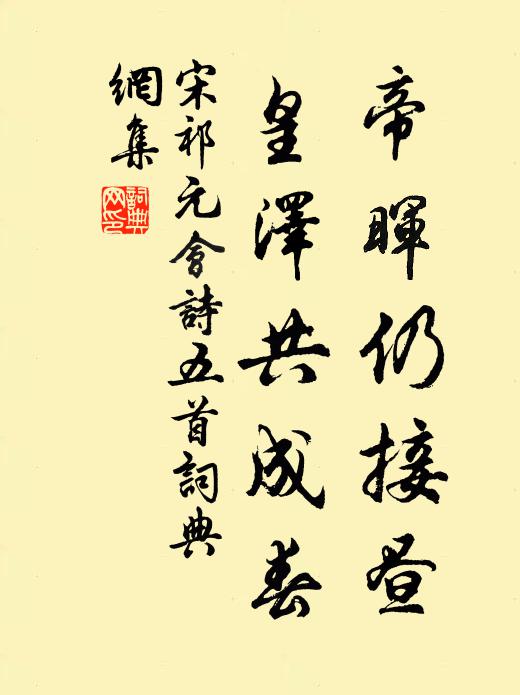 帝暉仍接昼
皇澤共成春
宋祁元會詩五首詞典
網集
詞典
网印